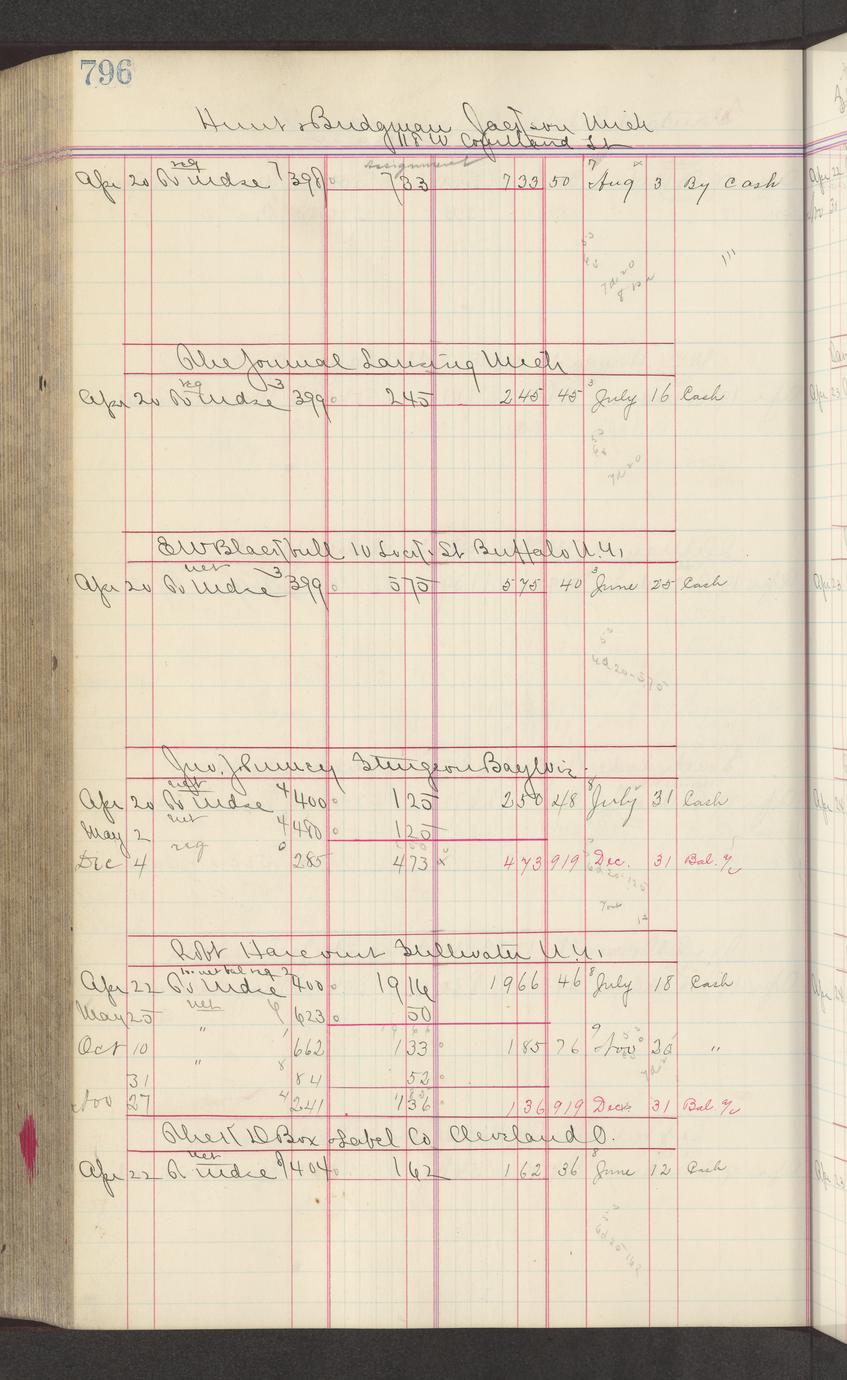 796
Hunt & Bridgman Jackson Mich
118 W Cortland St
Assignment
Apr 20 To Mdse reg 7 398 733 733 50 7 Aug 3 By Cash
The Journal Lansing Mich
Apr 20 To Mdse reg 3 399 245 245 45 3 July 16 Cash
10 St Buffalo N.Y.
Apr 20 To Mdse net 3 399 575 575 40 3 June 25 Cash
Jno. Sturgeon Bay Wis
Apr 20 To Mdse 4 400 125 250 48 8 July 31 Cash
May 2 net 4 480 125
Dec 4 reg 285 473 473 919 Dec. 31 Bal. a/c
Robt Harcourt Stillwater N.Y.
Apr 22 To Mdse 2 400 1916 1966 46 8 July 18 Cash
May 25 net 623 50
Oct 10 " 1 662 133 185 76 9 Nov 30 "
31 " 8 84 52
Nov 27 4 241 136 136 919 Dec 31 Bal. a/c
The K D Box & Label Co Cleveland O.
Apr 22 To Mdse net 404 162 162 36 8 June 12 Cash